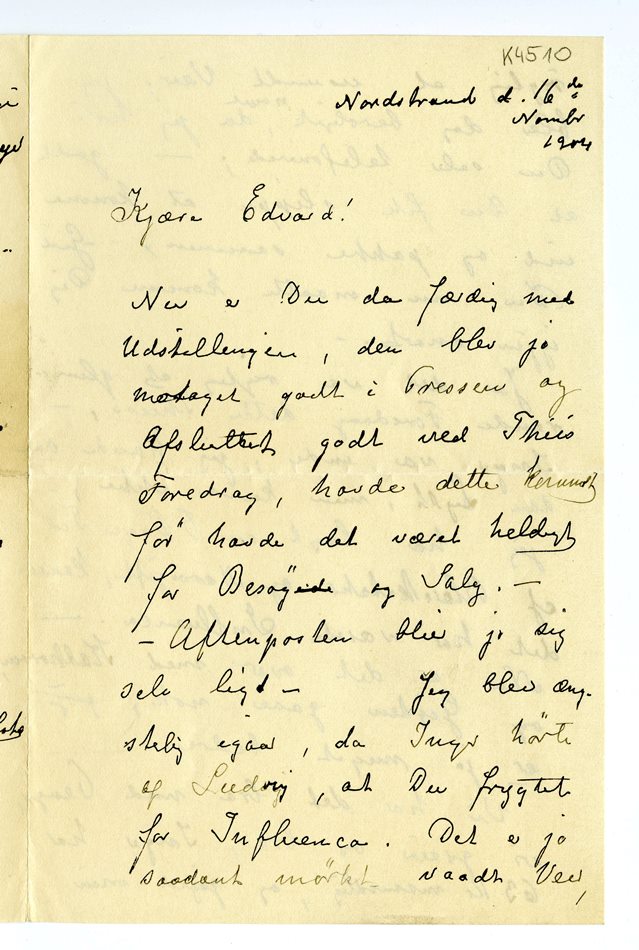 K4510
Nordstrand d. 16de
Novmbr
1904
Kjære Edvard!
Nu er Du da færdig med
Udstillingen, den blev jo
motaget godt i Pressen og
Afsluttet godt ved Thiis
Foredrag, havde dette kommet
før havde det været heldigt
for Besøg og Salg. —
— Aftenposten blir jo sig
selv ligt — Jeg blev æng-
stelig igaar, da Inger hörte
af Ludvig, at Du frygtet
for Influenca. Det er jo
saadant mörkt vaadt Veir,